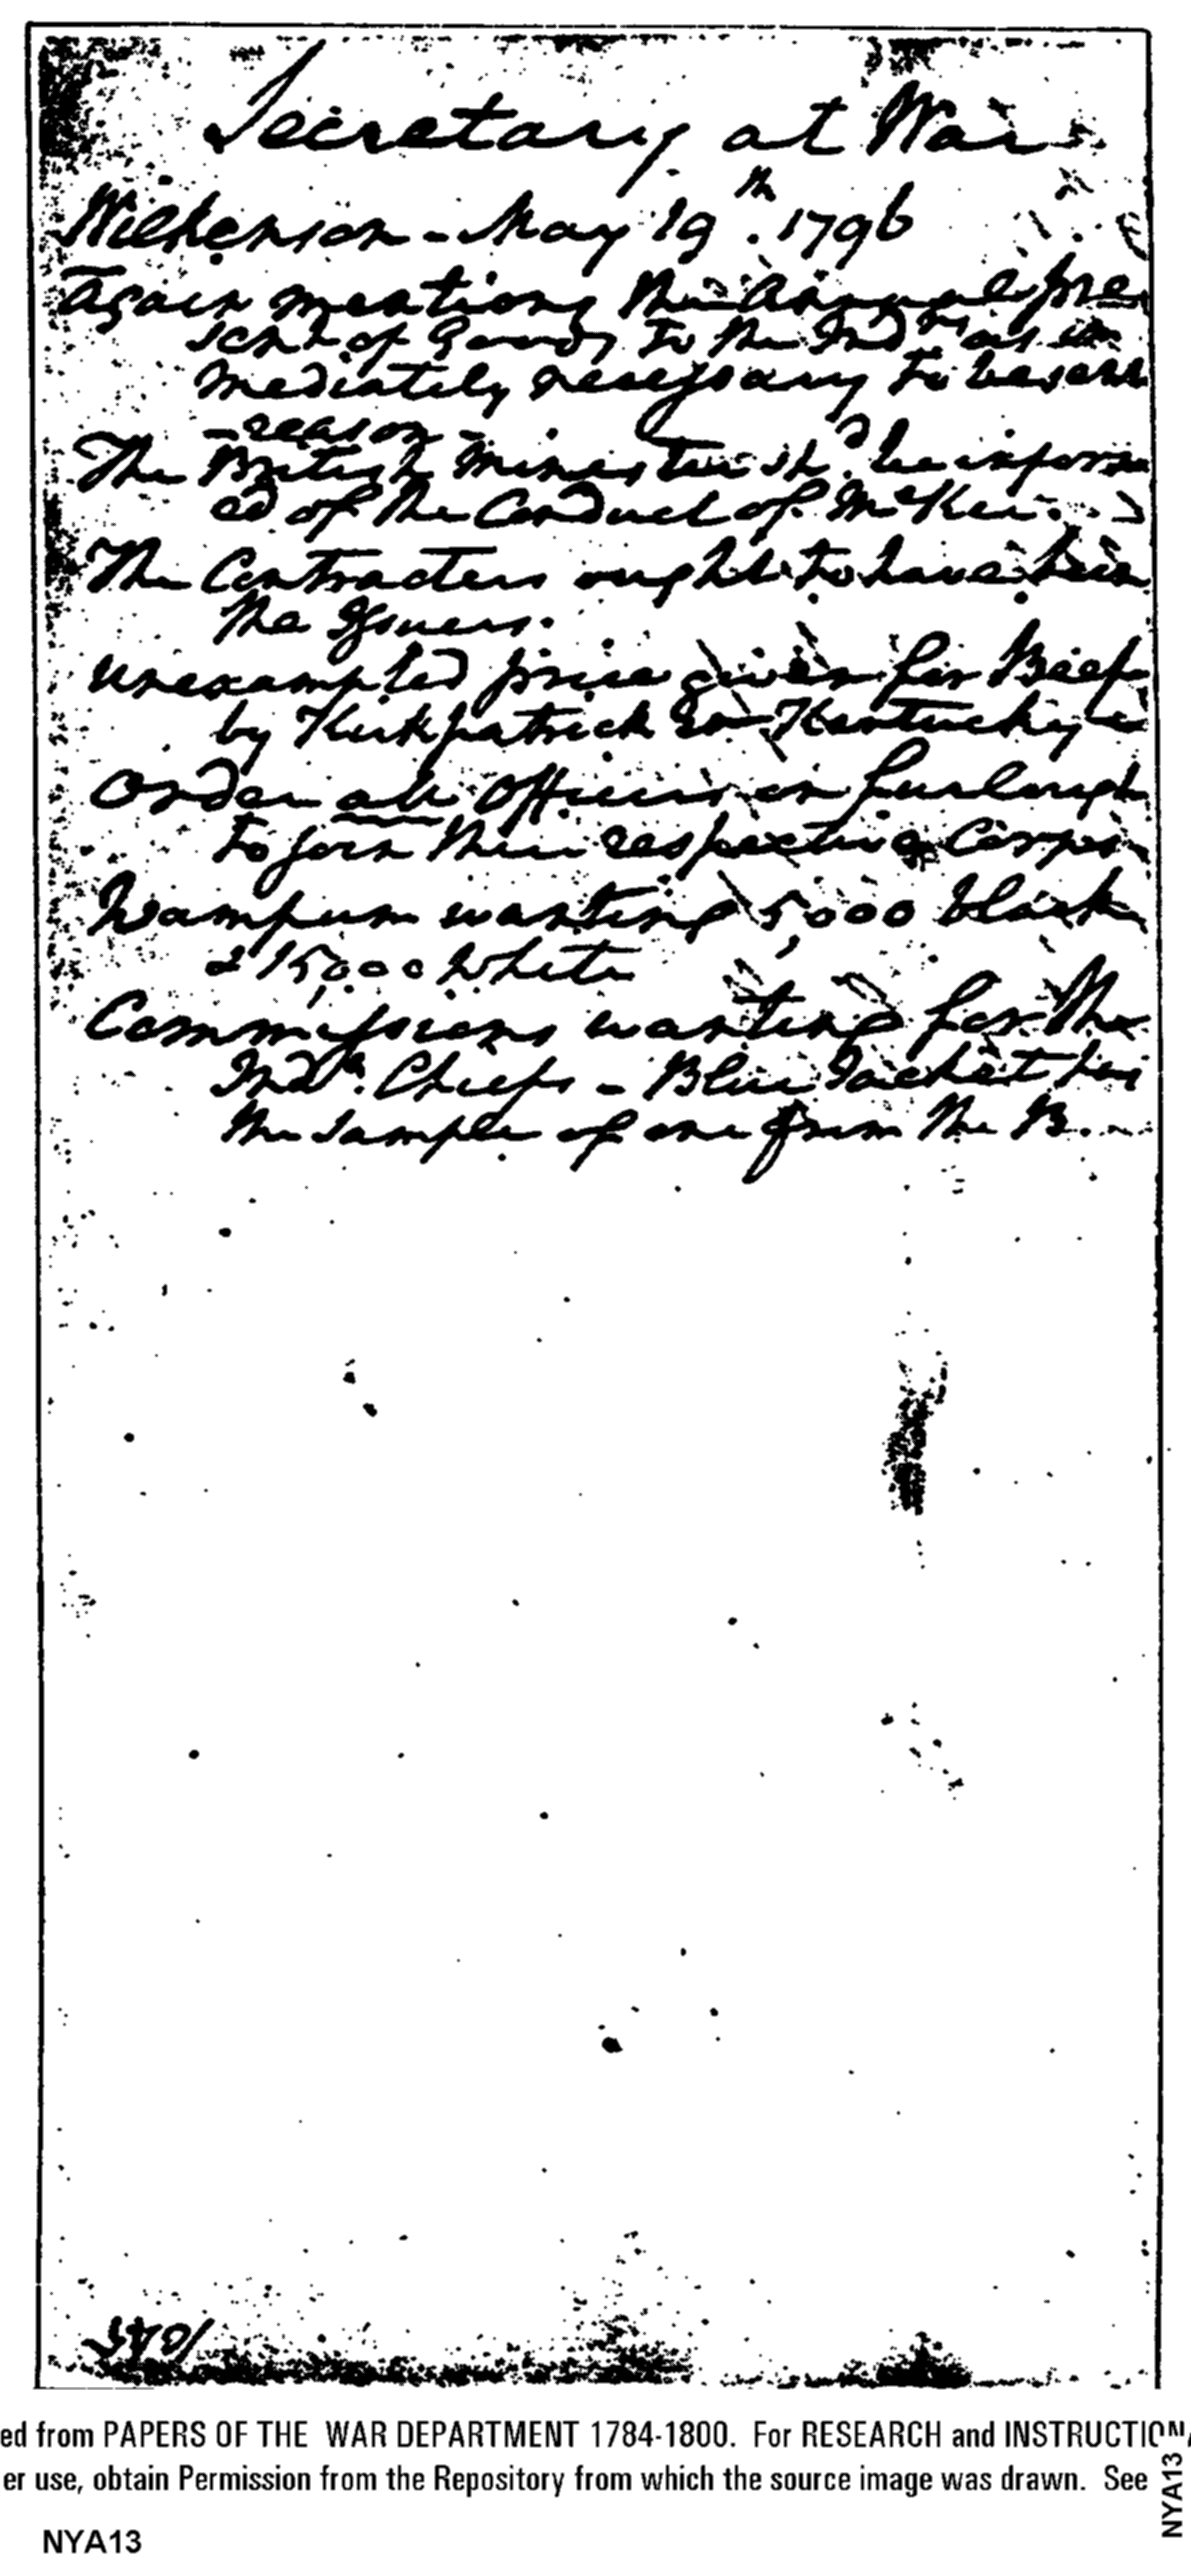 Secretary at War
Wilkenson - May 19th. 1796
Again mentions the annual pre
sent of Goods to the Indns as im
mediately necessary to be sent
- reason -
The British Minister shd. be inform
ed of the Conduct of McKee.
The Contractors ought to have been
the Issuers.
Unexampled price given for Beef
by Kirkpatrick in Kentucky
Order all Officers on furlough
to join their respective Corps
Wampum wanting 5,000 black
& 15,000 White
Commissions wanting for the
Indn. Chiefs - Blue Jacket has
the sample of one from the B.
1045
ed from PAPERS OF THE WAR DEPARTMENT 1784-1800. For RESEARCH and INSTRUCTIONA
er use, obtain Permission from the Repository from which the source image was drawn. See
NYA13
NYA13